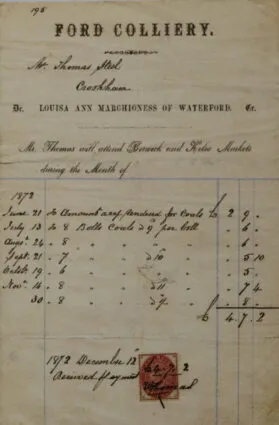 195
FORD COLLIERY.
Mr. Thomas Hed
Crookham
Dr. LOUISA ANN MARCHIONESS OF WATERFORD. Cr.
Mr. Thomas will attend Berwick and Kelso Markets
during the Month of
1872
June 21 To Amount rendered for Coals £ 2 9 "
July 13 To 8 Bolls Coals @ 9 per boll " 6 "
Augst. 24 " 8 " " " " 6 "
Sept. 21 " 7 " " @ 10 " 5 10
Octobr. 19 " 6 " " " " 5 "
Novr. 16 " 8 " " @ 11 " 7 4
30 " 8 " " " 8 "
£ 4. 7. 2
1872 December 12
£4. 7. 2
Received payment